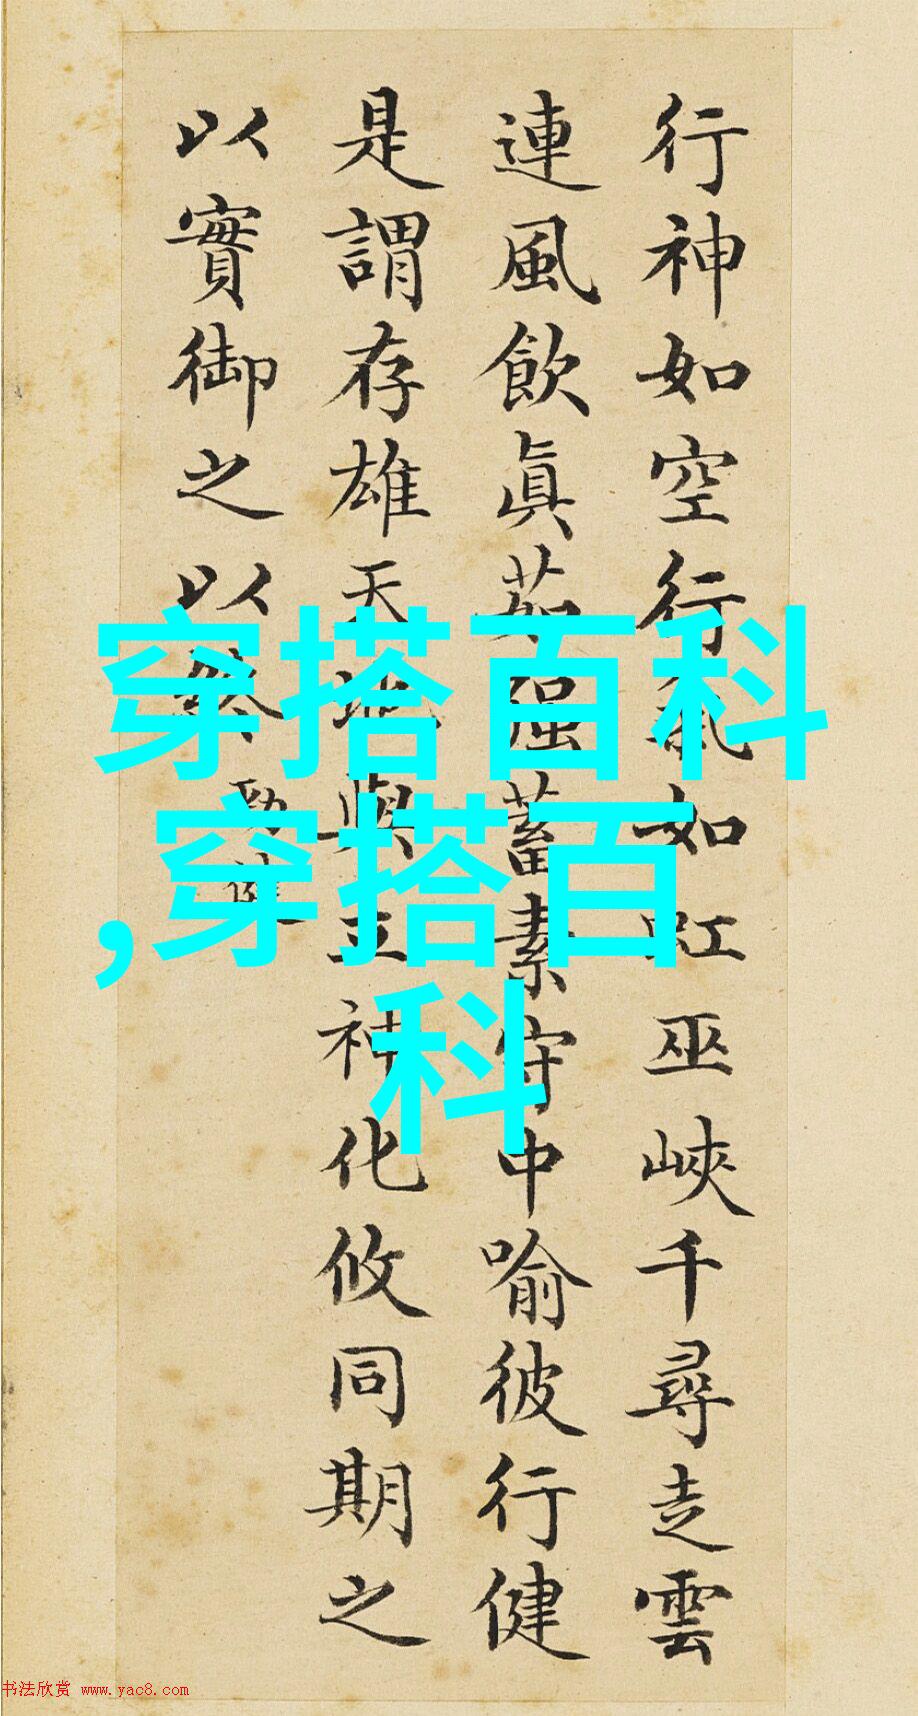 行神如空行氣如虹巫峽千尋走雲
連風飲眞茹强蓄素守中喻彼行健
是謂存雄天地與立神化攸同期之
以實御之以終勁健
穿搭百科
,穿搭百
科
书法欣赏 www.yac8.com